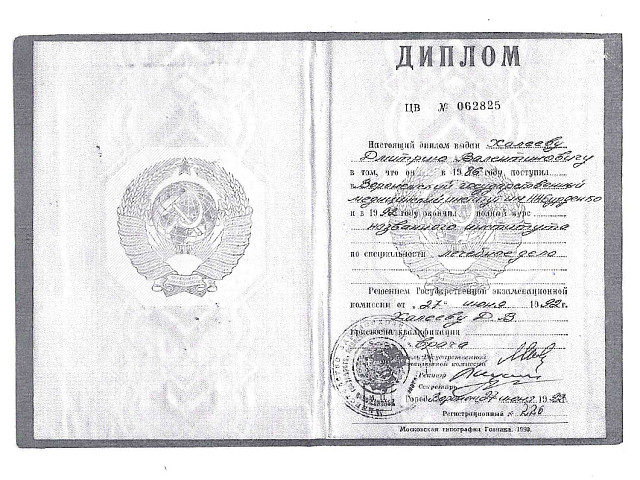 ДИПЛОМ
ЦВ № 062825
Настоящий диплом выдан Халееву
Дмитрию Валентиновичу
в том, что он в 1986 году поступил
в Воронежский государственный
медицинский институт им. Н.Н. Бурденко
и в 1992 году окончил полный курс
названного института
по специальности лечебное дело
Решением Государственной экзаменационной
комиссии от "27" июня 1992 г.
Халееву Д. В.
присвоена квалификация
врача
Государственной
экзаменационной комиссии
Ректор
Секретарь
Город Воронеж 27 июня 1992 г.
Регистрационный № 226
Московская типография Гознака. 1990.